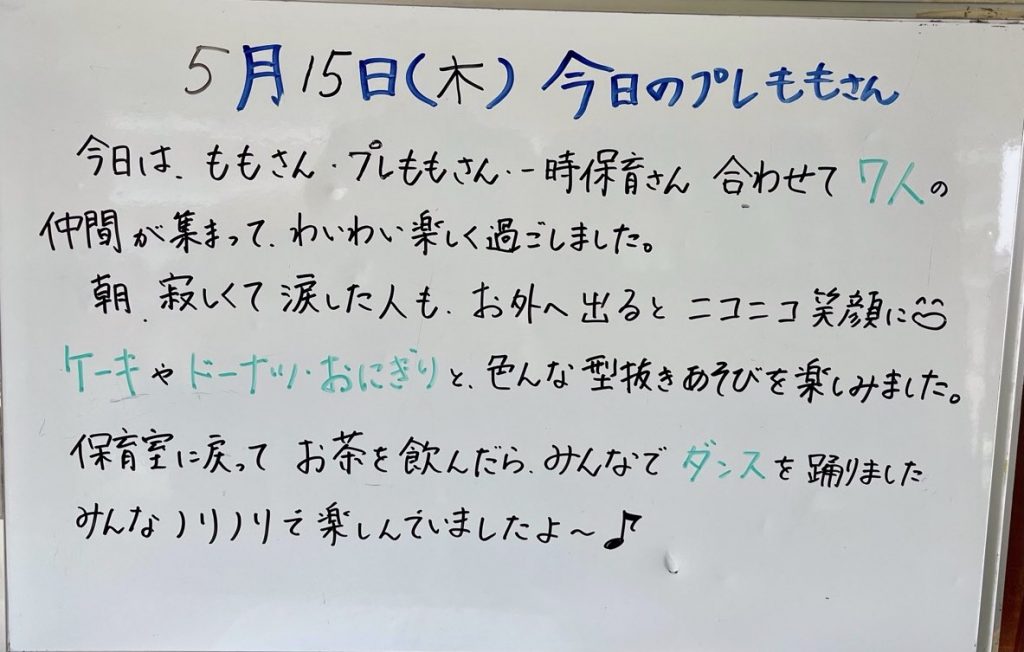 5月15日(木) 今日のプレももさん
今日は、ももさん・プレももさん・一時保育さん 合わせて 7人の
仲間が集まって、わいわい楽しく過ごしました。
朝、寂しくて涙した人も、お外へ出るとニコニコ笑顔に😊
ケーキやドーナッツ・おにぎりと、色んな型抜きあそびを楽しみました。
保育室に戻って お茶を飲んだら、みんなでダンスを踊りました
みんなノリノリで楽しんでいましたよ〜♪